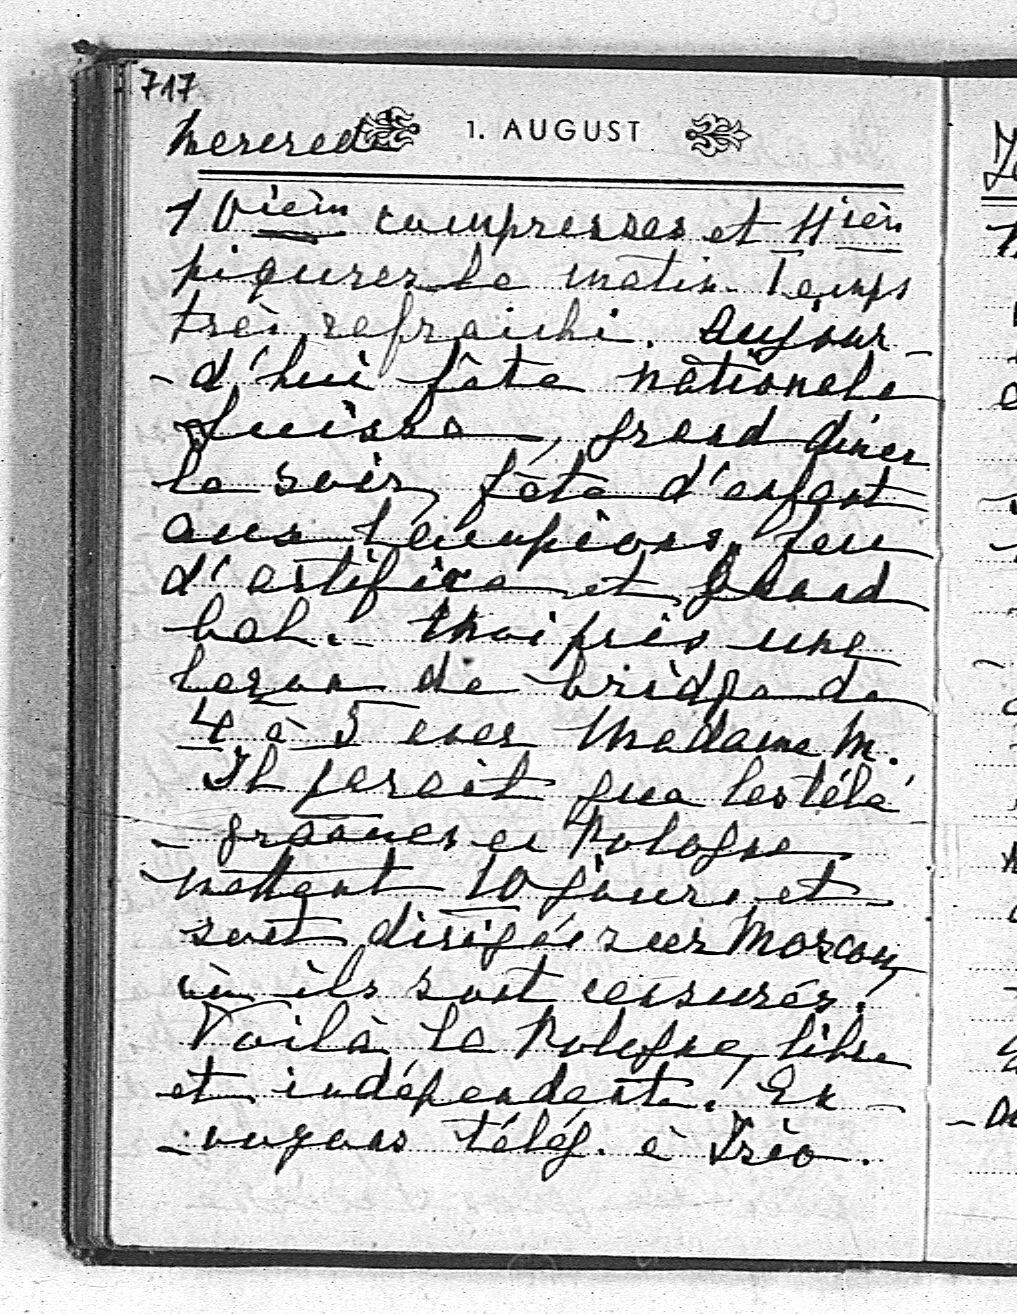 717
Mercredi 1. AUGUST
10ièm compresses et 11ièm
piqures le matin. Temps
très rafraichi. Aujour-
-d'hui fête nationale
Suisse, grand diner
le soir, fête d'enfant
aux lampions, feu
d'artifice et grand
bal. Moi pris une
leçon de bridge de
4 à 5 avec Madame M.
Il parait que les télé
-grammes en Pologne
mettent 10 jours et
sont dirigées sur Moscou,
où ils sont censurés!
Voilà la Pologne, libre
et indépendente! En-
-voyons télég. à